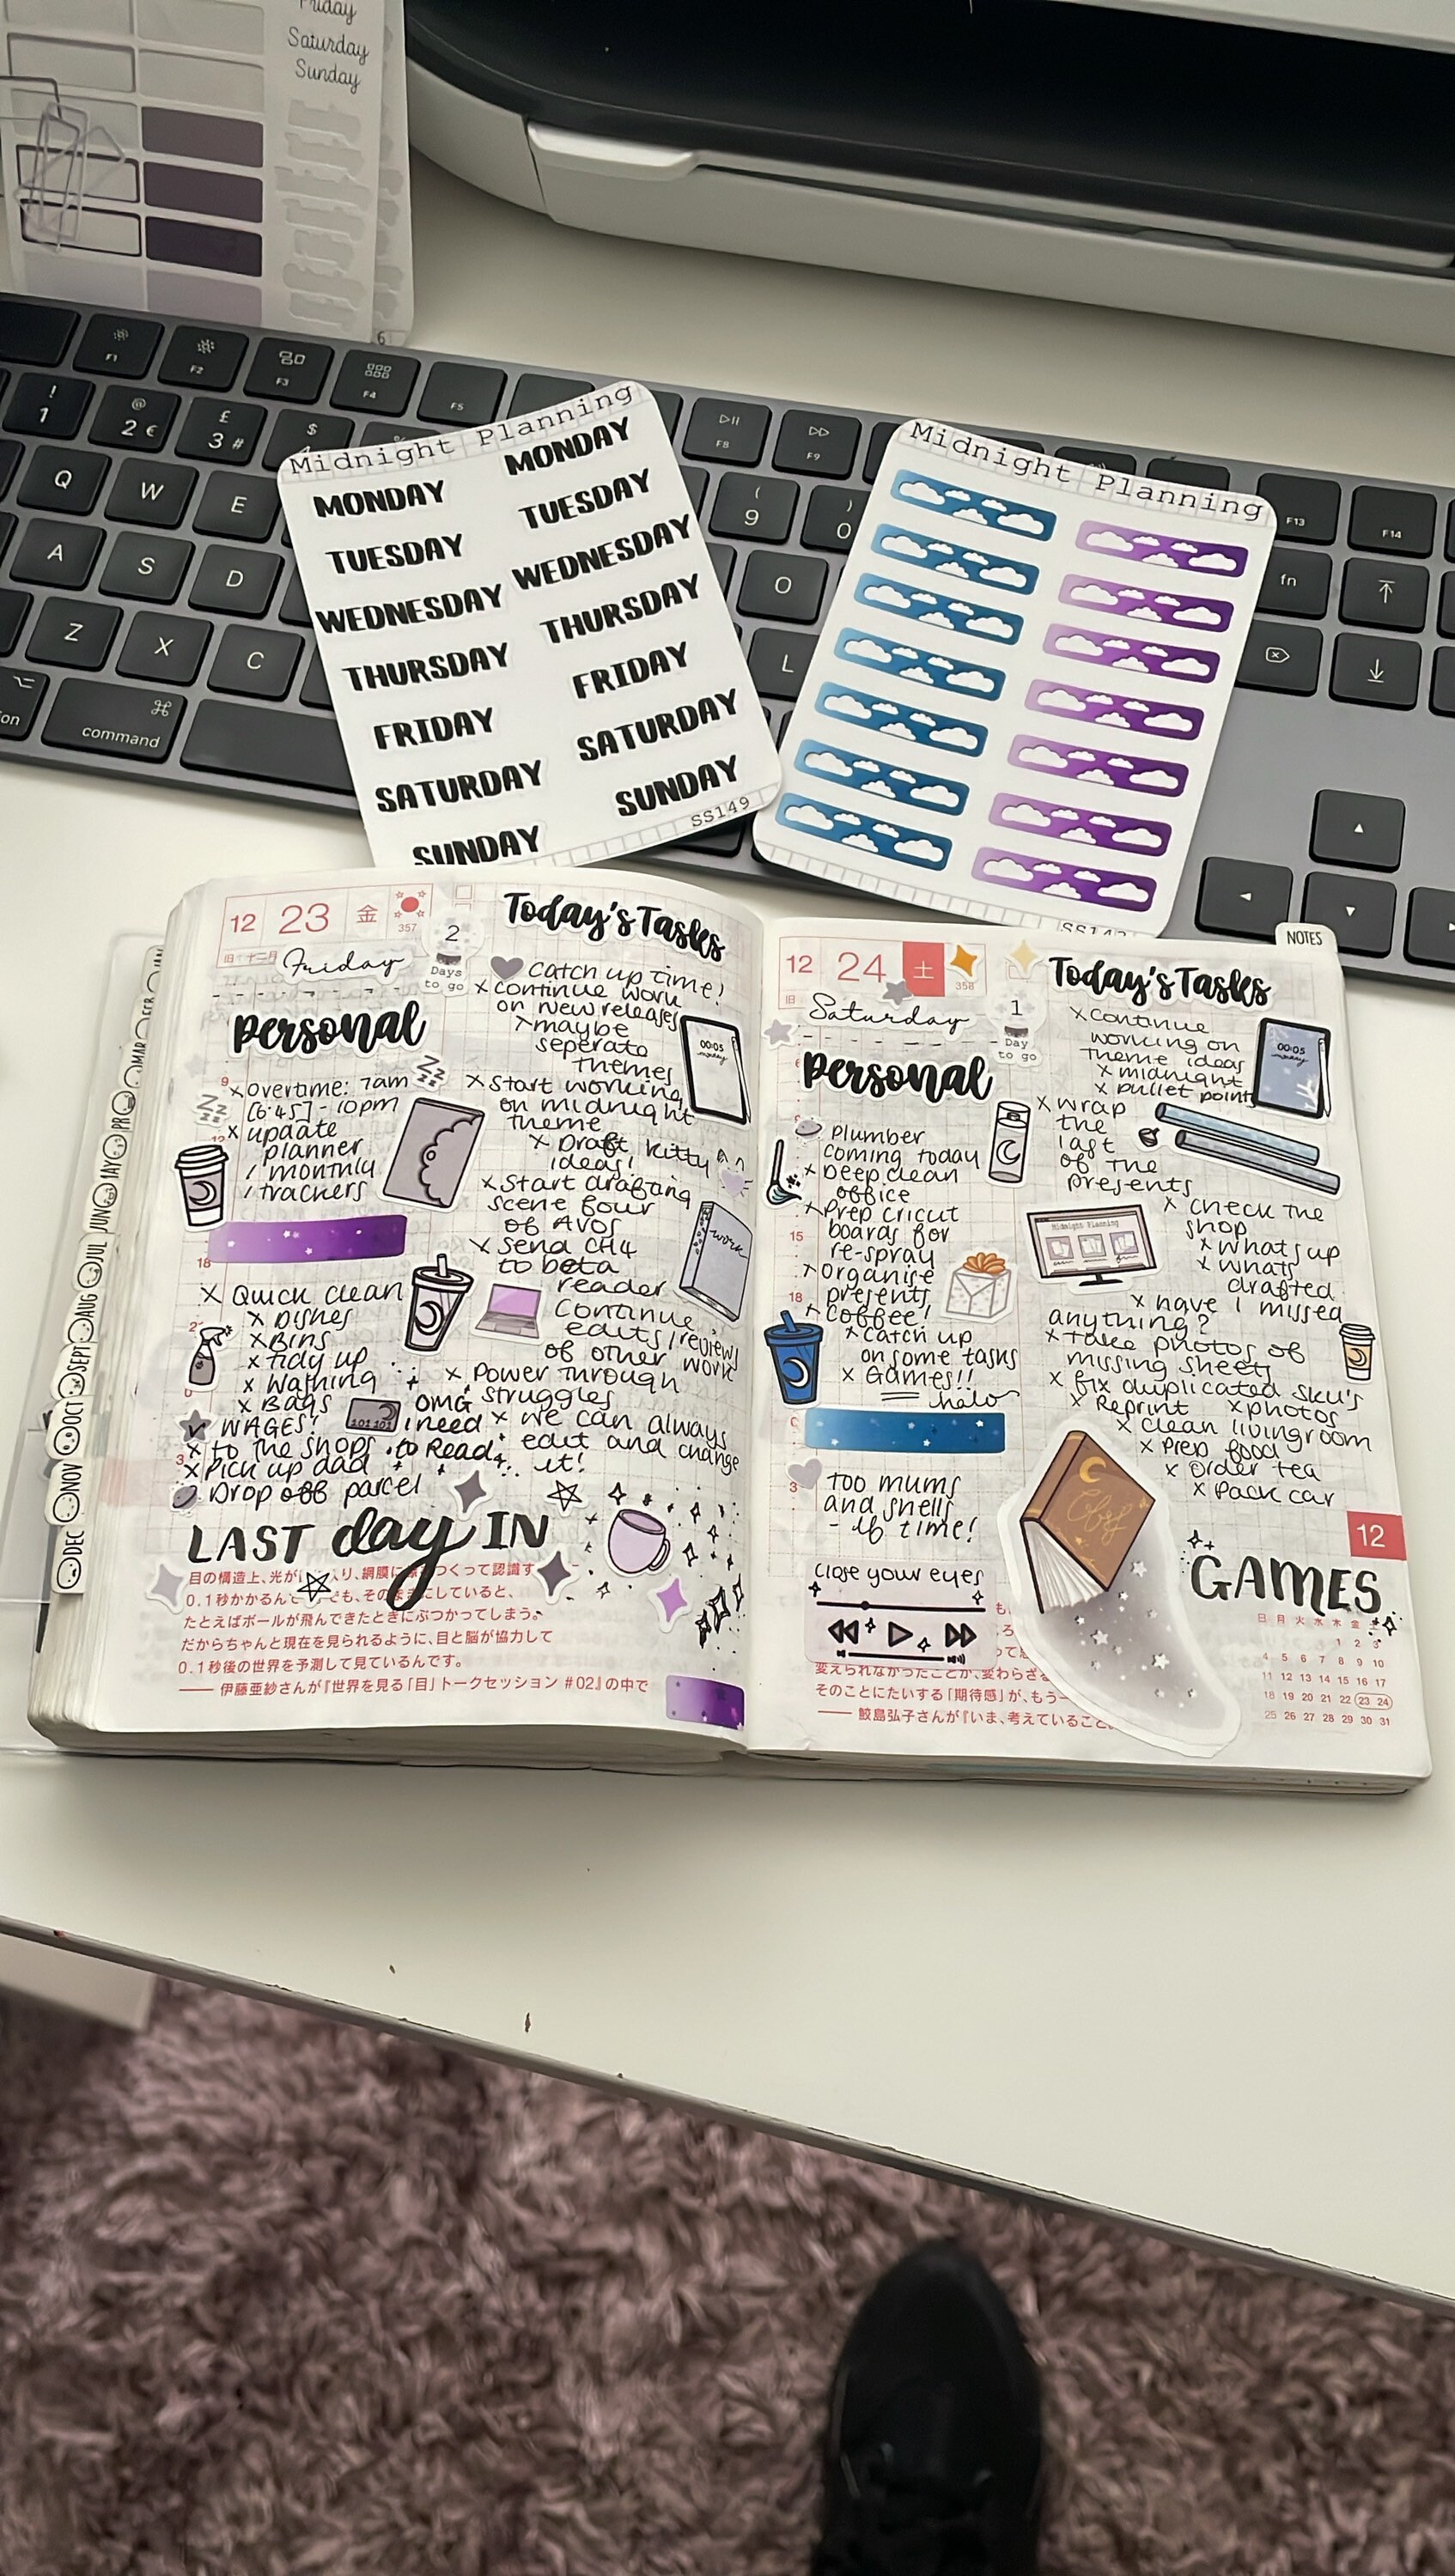 Friday
Saturday
Sunday
6
F1
F2
F3
F4
F5
F8
F9
F13
F14
!
1
@
2 €
£
3 #
$
(
9
)
0
Q
W
E
A
S
D
O
fn
Z
X
C
L
command
Midnight Planning
MONDAY
MONDAY
TUESDAY
TUESDAY
WEDNESDAY
WEDNESDAY
THURSDAY
THURSDAY
FRIDAY
FRIDAY
SATURDAY
SATURDAY
SUNDAY
SUNDAY
SS149
Midnight Planning
NOTES
JUL
AUG
SEPT
OCT
NOV
DEC
12 23 金
357
Friday
2
Days
to go
Personal
x overtime: 7am
[6:45] - 10pm
x update
planner
/ monthly
/ trackers
x Quick clean
x Dishes
x Bins
x tidy up
x washing
x Bags
WAGES!
x to the shops
x Pick up dad
Drop off parcel
OMG
i need
to Read
Today's Tasks
catch up time!
x continue work
on new releases
x maybe
seperate
themes
x start working
on midnight
theme
x Draft kitty
ideas!
x start drafting
scene four
of AVOS
x send CH4
to beta
reader
continue
edits/reviews
of other work
x power through
struggles
x we can always
edit and change
it!
00:05
work
LAST day IN
0.1秒かかるんで
たとえばボールが飛んできたときにぶつかってしまう。
だからちゃんと現在を見られるように、目と脳が協力して
0.1秒後の世界を予測して見ているんです。
—— 伊藤亜紗さんが『世界を見る「目」トークセッション #02』の中で
12 24 土
358
Saturday
1
Day
to go
Personal
Plumber
coming today
x Deep clean
office
x Prep cricut
boards for
re-spray
x organise
presents
x coffee!
x catch up
on some tasks
x Games!!
halo
Too mums
and snells
time!
close your eyes
Today's Tasks
x continue
working on
theme ideas
x midnight
x bullet points
x wrap
the
last
of the
presents
00:05
Midnight Planning
x check the
shop
x whats up
x whats
drafted
x have i missed
anything?
x take photos of
missing sheets
x fix duplicated sku's
x Reprint x photos
x clean livingroom
x prep food
x order tea
x pack car
12
GAMES
変えられなかったことが、変わらざる
そのことにたいする「期待感」が、もう一
—— 鮫島弘子さんが『いま、考えていること』
日 月 火 水 木 金
1 2 3
4 5 6 7 8 9 10
11 12 13 14 15 16 17
18 19 20 21 22 23 24
25 26 27 28 29 30 31